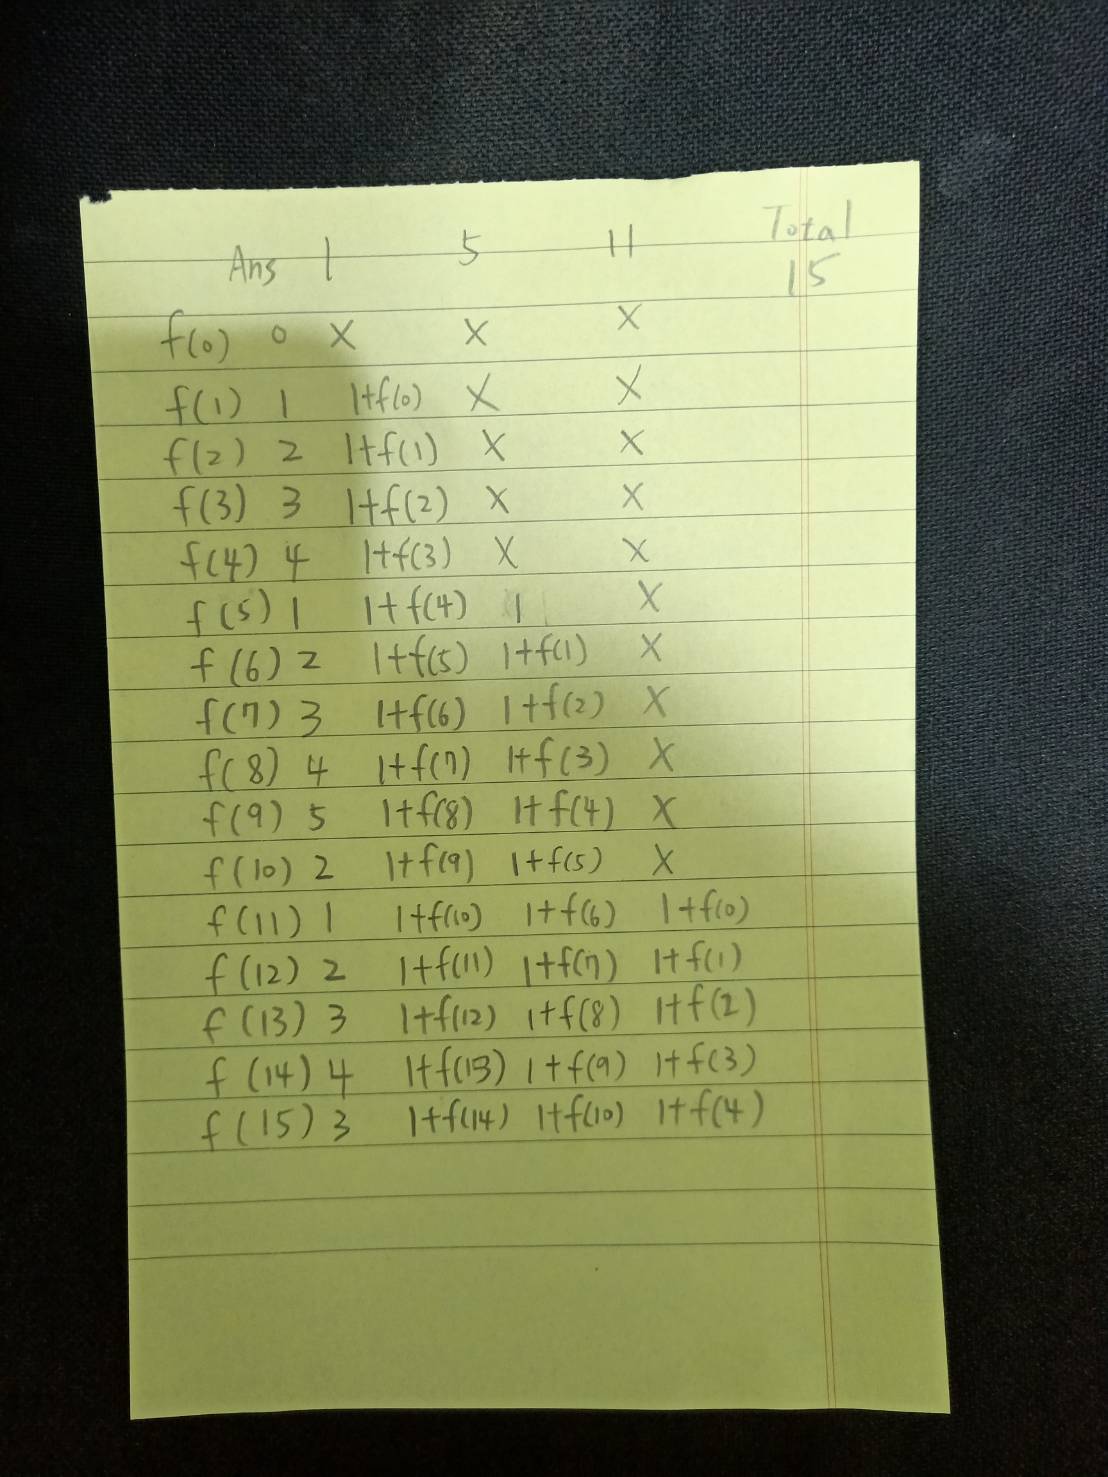 Total
Ans 1 5 11 15
f(0) 0 X X X
f(1) 1 1+f(0) X X
f(2) 2 1+f(1) X X
f(3) 3 1+f(2) X X
f(4) 4 1+f(3) X X
f(5) 1 1+f(4) 1 X
f(6) 2 1+f(5) 1+f(1) X
f(7) 3 1+f(6) 1+f(2) X
f(8) 4 1+f(7) 1+f(3) X
f(9) 5 1+f(8) 1+f(4) X
f(10) 2 1+f(9) 1+f(5) X
f(11) 1 1+f(10) 1+f(6) 1+f(0)
f(12) 2 1+f(11) 1+f(7) 1+f(1)
f(13) 3 1+f(12) 1+f(8) 1+f(2)
f(14) 4 1+f(13) 1+f(9) 1+f(3)
f(15) 3 1+f(14) 1+f(10) 1+f(4)